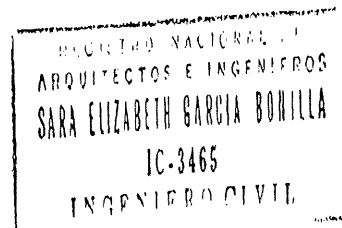 REGISTRO NACIONAL DE
ARQUITECTOS E INGENIEROS
SARA ELIZABETH GARCIA BONILLA
IC-3465
INGENIERO CIVIL